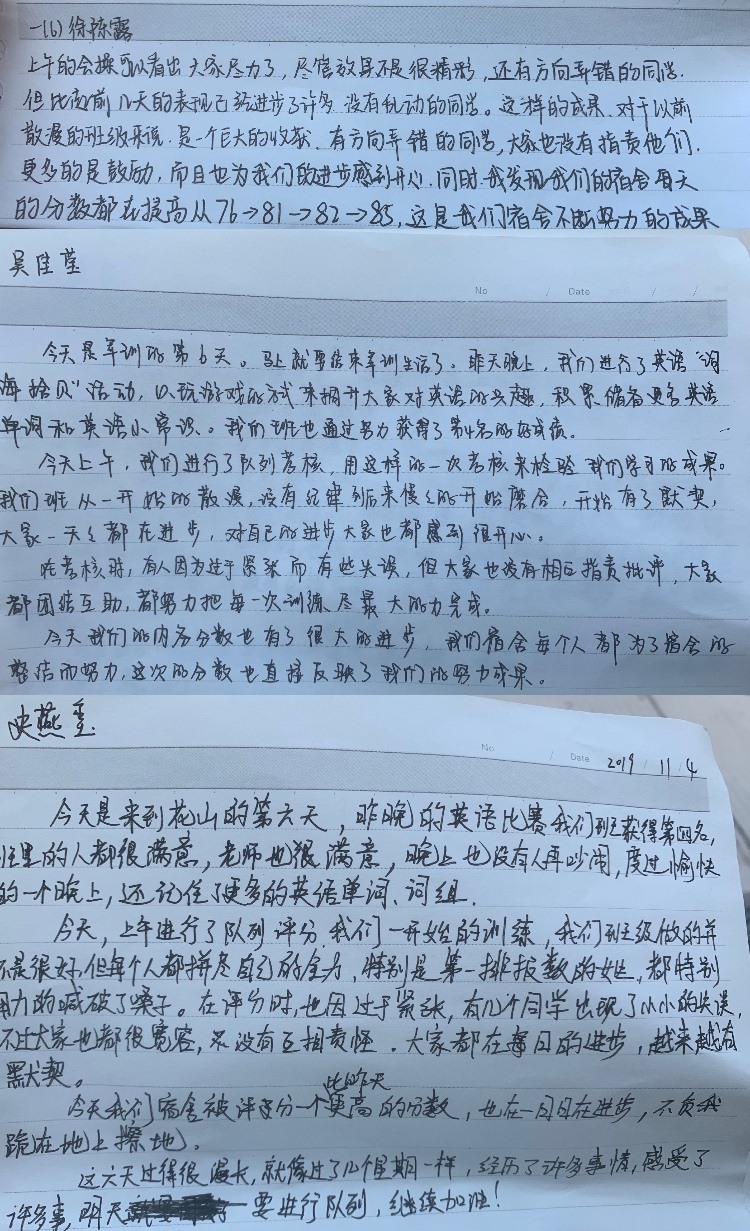 一(6) 徐陈露
上午的会操可以看出大家尽力了，尽管效果不是很精彩，还有方向弄错的同学.
但比起前几天的表现已经进步了许多 没有乱动的同学。这样的成果.对于以前
散漫的班级来说.是一个巨大的收获.有方向弄错的同学,大家也没有指责他们.
更多的是鼓励,而且也为我们的进步感到开心.同时.我发现我们的宿舍每天
的分数都在提高从76→81→82→85,这是我们宿舍不断努力的成果
吴佳莹
No / Date / /
今天是军训的第6天。马上就要结束军训生活了。昨天晚上，我们进行了英语"词
海拾贝"活动，以玩游戏的方式来提升大家对英语的兴趣，积累储备更多英语
单词和英语小常识。我们班也通过努力获得了第4名的好成绩。
今天上午，我们进行了队列考核，用这样的一次考核来检验我们学习的成果。
我们班从一开始的散漫，没有纪律到后来慢慢的开始磨合，开始有了默契，
大家一天天都在进步，对自己的进步大家也都感到很开心。
在考核时，有人因为过于紧张而有些失误，但大家也没有相互指责批评，大家
都团结互助，都努力把每一次训练尽最大的力完成。
今天我们的内务分数也有了很大的进步，我们宿舍每个人都为了宿舍的
整洁而努力,这次的分数也直接反映了我们的努力成果。
史燕
No / Date 2019 / 11 / 4
今天是来到花山的第六天，昨晚的英语比赛我们班获得第四名，
班里的人都很满意，老师也很满意，晚上也没有人再吵闹，度过愉快
的一个晚上，还记住了更多的英语单词、词组.
今天，上午进行了队列评分.我们一开始的训练，我们班级做的并
不是很好.但每个人都拼尽自己的全力，特别是第一排报数的,都特别
用力的喊破了嗓子。在评分时，也因过于紧张，有几个同学出现了小小的失误，
不过大家也都很宽容，没有互相责怪.大家都在每日的进步，越来越有
默契。
今天我们宿舍被评分一个比昨天更高的分数，也在一日日在进步，不负我
跪在地上擦地.
这六天过得很漫长，就像过了几个星期一样，经历了许多事情，感受了
许多事,明天要进行队列，继续加油！